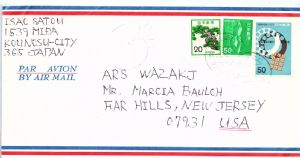 ISAO SATOH
1539 MIDA
KOUNOSU-CITY
365 JAPAN
PAR AVION
BY AIR MAIL
20
50
50
ARS WAZAKJ
Mr. MARCIA BAULCH
FAR HILLS, NEW JERSEY
07931 USA